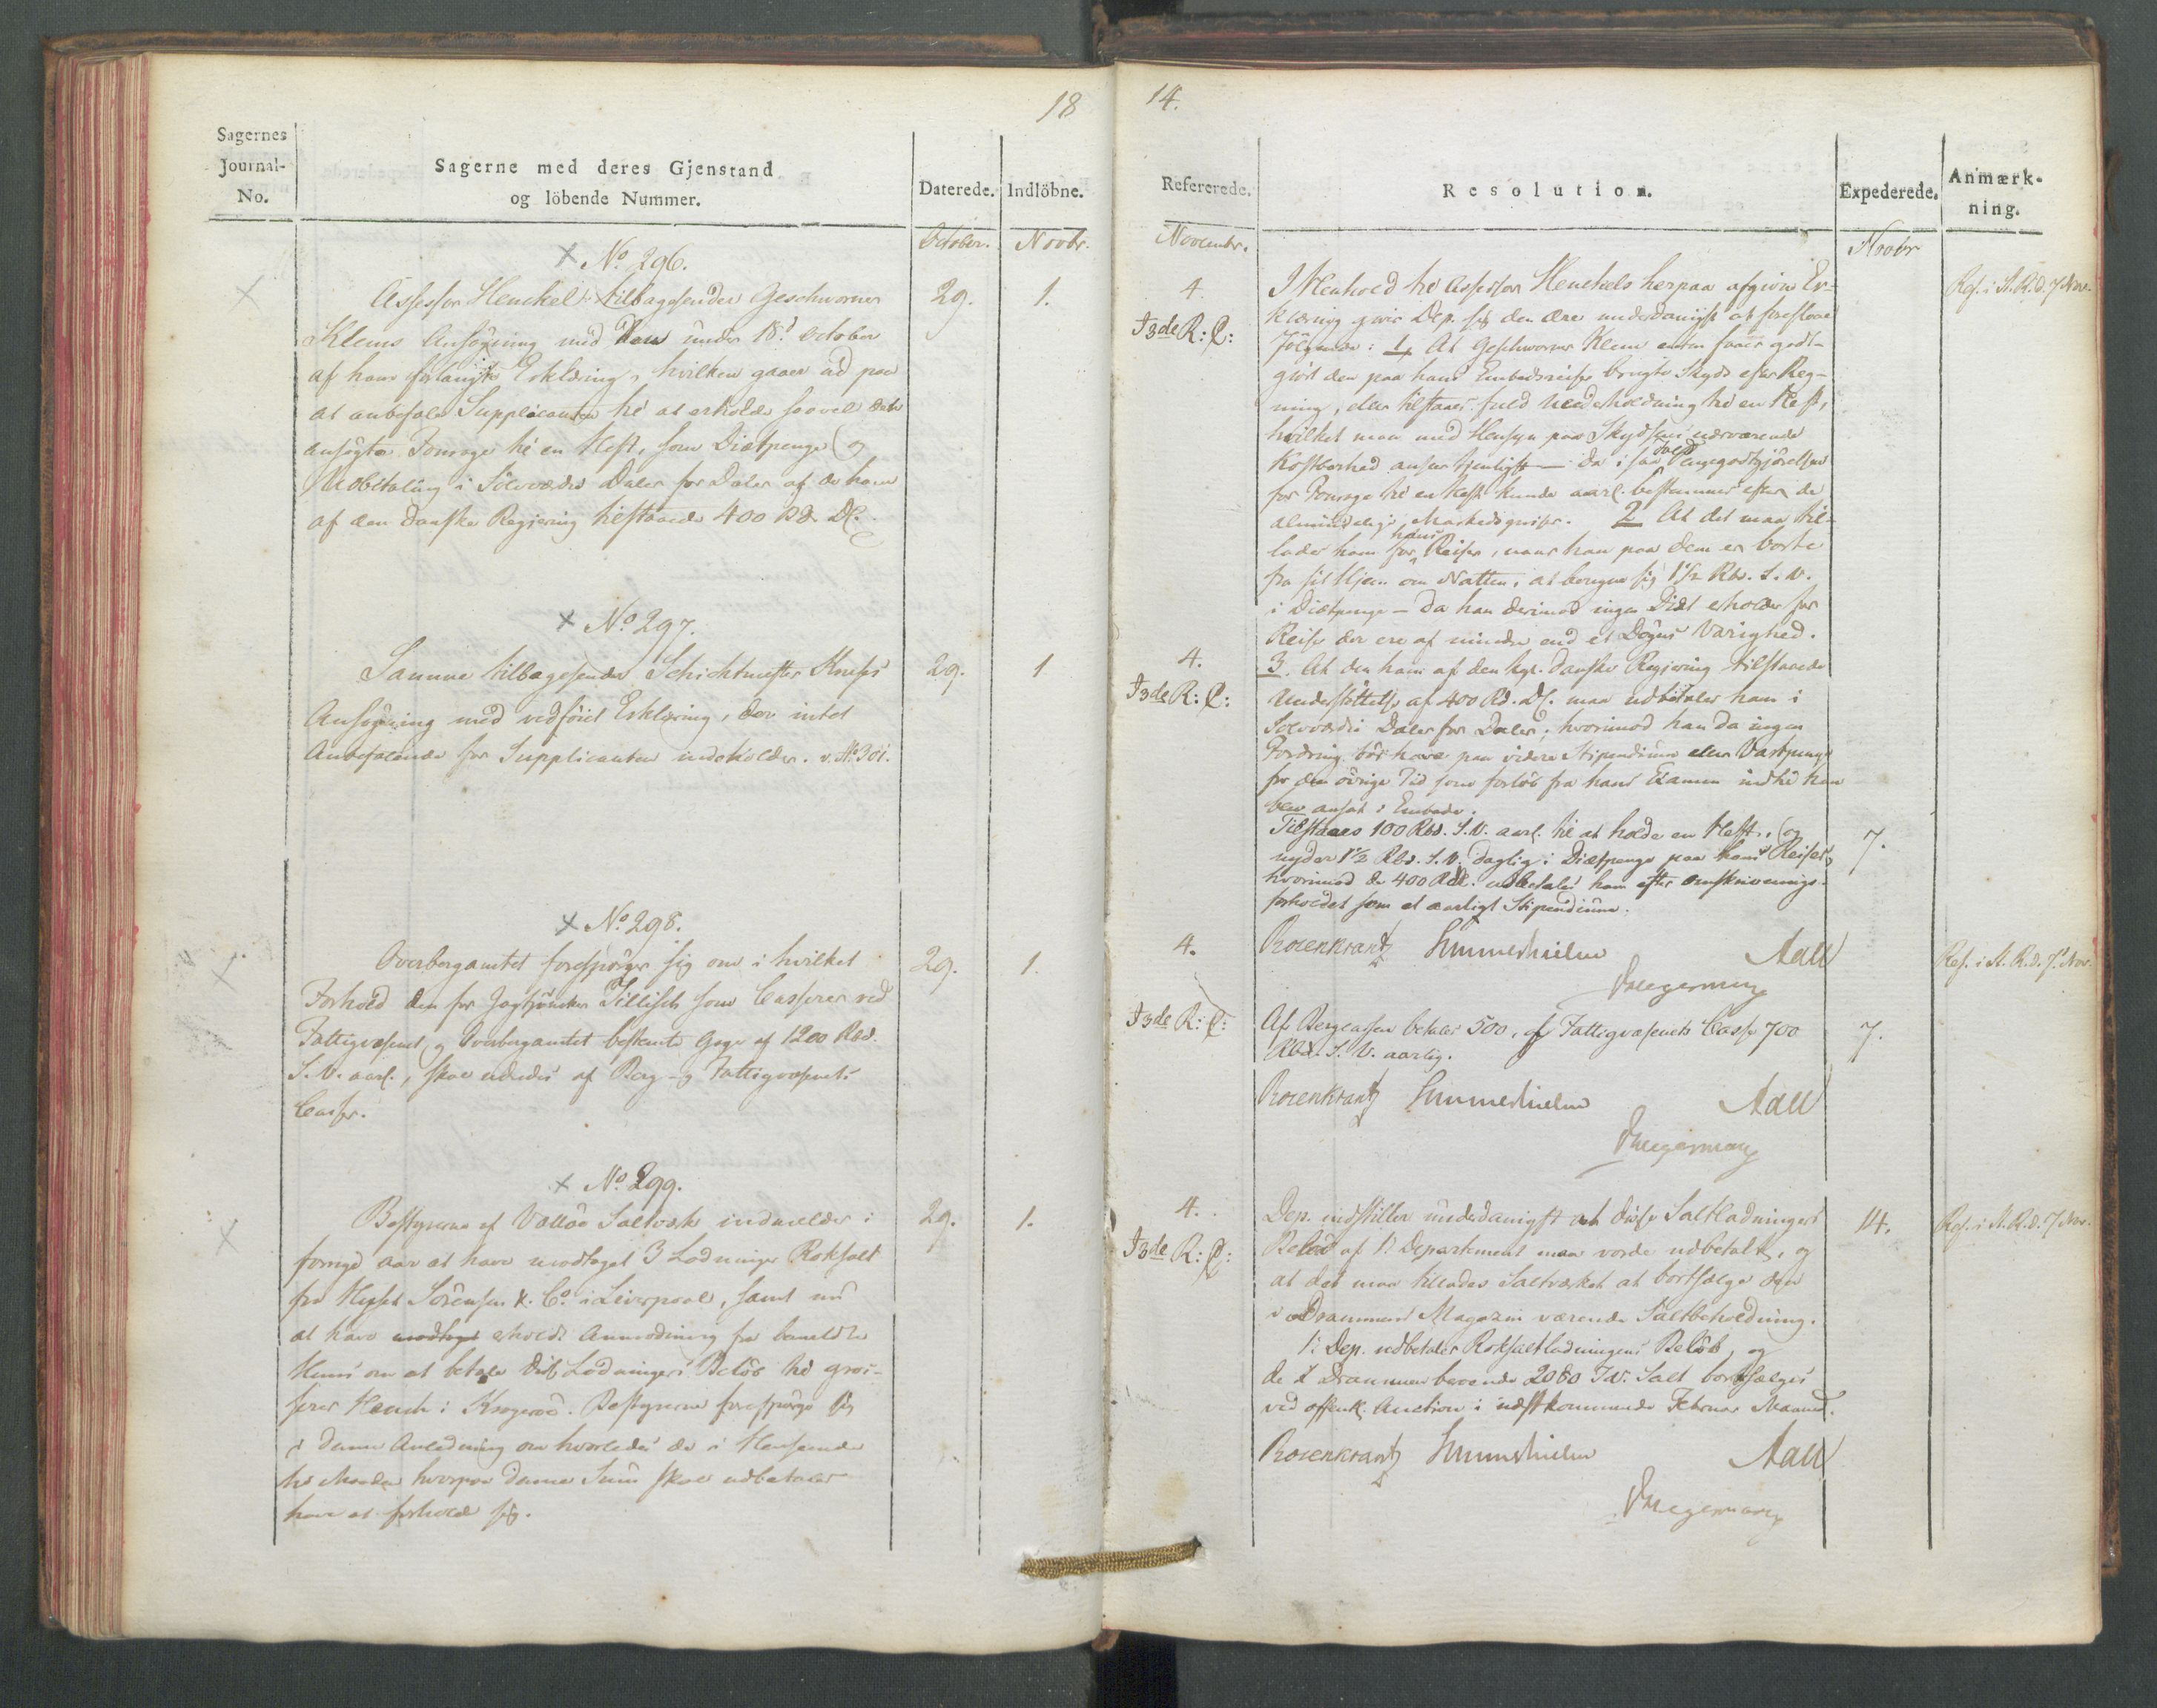 18
Sagernes
Journal-
No.
Sagerne med deres Gjenstand
og löbende Nummer.
Daterede.
Indlöbne.
October.
Novbr.
× No. 296.
Assessor Henckel tilbagesender Geschworner
29.
1.
Klems Ansøgning med den under 18d October
af ham forlangte Erklæring, hvilken gaaer ud paa
at anbefale Supplicanten til at erholde saavel den
ansøgte Fourage til en Hest, som Diætpenge og
Udbetaling i Sölvværdie Daler for Daler af de ham
af den danske Regjering tilstaaede 400 Rd. DC.
× No. 297.
Samme tilbagesender Schichtmester
29.
1
Ansøgning med vedföiet Erklæring, der intet
Anbefalende for Supplicanten indeholder. v. No 301.
× No. 298.
Overbergamtet forespörger sig om i hvilket
29.
1.
Forhold den for Jagtjunker Tillisch som Casserer ved
Fattigvæsenet og Overbergamtet bestemte Gage af 1200 Rbd.
S.V. aarl., skal udredes af Berg- og Fattigvæsenets
Casser.
× No. 299.
Bestyrerne af Vallöe Saltværk indmelder i
29.
1.
forrige Aar at have modtaget 3 Ladninger Roksalt
fra Sörensen & Co. i Liverpool, samt nu
at have modtaget erholdt Anmodning fra bemeldte
Huus om at betale disse Ladningers Belöb til Gros-
serer Heuch i Kragerøe. Bestyrerne forespörge sig
i denne Anledning om hvorledes de i Henseende
til Maaden hvorpaa denne Sum skal udbetales
have at forholde sig.
14.
Refererede.
Resolution.
Expederede.
Anmærk-
ning.
Novembr.
Novbr
4.
I Henhold til Assessor Henckels herpaa afgivne Er-
Ref. i St. R. d. 7 Nov.
I 3de R: C:
klæring giver Dep. sig den Ære underdanigst at foreslaae
Fölgende: 1, At Geschworner Klem enten faaer godt-
gjort den paa hans Embedsreiser brugte Skyds efter Reg-
ning, eller tilstaaes fuld Underholdning til en Hest,
hvilket man med Hensyn paa Skydsens nærværende
Kostbarhed anseer tjenligst — da i saa Fald Pengegodtgjörelsen
for Fourage til en Hest kunde aarl. bestemmes efter de
almindelige Markedspriser. 2 At det maa til-
lades ham for hans Reiser, naar han paa dem er borte
fra sit Hjem om Natten, at beregne sig 1½ Rbd. S.V.
i Diætpenge — da han derimod ingen Diæt erholder for
Reiser der ere af mindre end et Dögns Varighed.
4.
3. At den ham af den kgl. danske Regjering tilstaaede
I 3de R: C:
Understöttelse af 400 Rd. DC. maa udbetales ham i
Sölvværdie Daler for Daler; hvorimod han da ingen
Fordring bör have paa videre Stipendium eller Vartpenge
for den övrige Tid som forlöb fra hans Examen indtil han
blev ansat i Embede.
Tilstaaes 100 Rbd. S.V. aarl. til at holde en Hest, og
7.
nyder 1½ Rbd. S.V. daglig i Diætpenge paa hans Reiser,
hvorimod de 400 Rdl. udbetales ham efter Omskrivnings-
forholdet som et aarligt Stipendium.
4.
Rosenkrantz Sommerhielm Aall
Ref. i St. R. d. 7 Nov.
Diegermann
I 3de R: C:
Af Bergcassen betales 500, af Fattigvæsenets Casse 700
7.
Rbd. S.V. aarlig.
Rosenkrantz Sommerhielm Aall
Diegermann
4.
Dep. indstiller underdanigst at disse Saltladningers
14.
Ref. i St. R. d. 7 Nov.
I 3de R: C:
Belöb af 1. Departement maa vorde udbetalt, og
at det maa tillades Saltværket at bortsælge den
i Drammens Magazin værende Saltbeholdning.
1: Dep. udbetaler Roksaltladningens Belöb, og
de i Drammen beroende 2080 Tdr. Salt bortsælges
ved offentl. Auction i næstkommende Februar Maaned.
Rosenkrantz Sommerhielm Aall
Diegermann